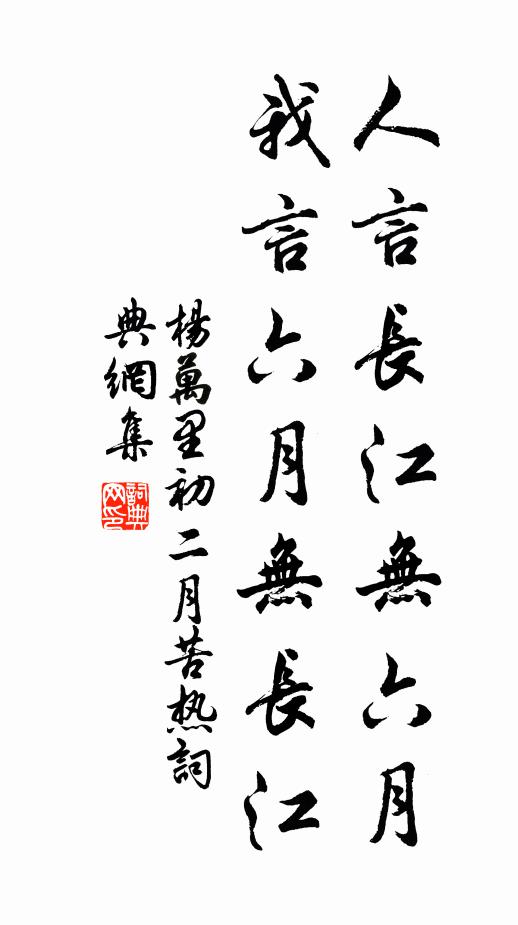 人言長江無六月
我言六月無長江
楊萬里初二月苦热詞
典網集
詞典
网印